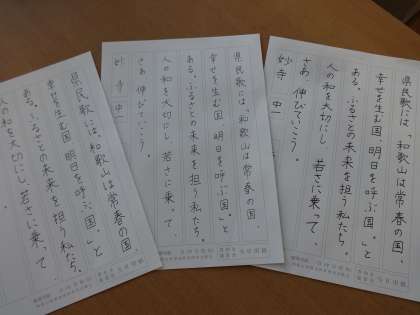 県民歌には、和歌山は常春の国、
幸せを生む国、明日を呼ぶ国。」と
ある。ふるさとの未来を担う私たち。
人の和を大切にし 若さに乗って、
さあ 伸びていこう。
妙寺 中一
県民歌には、和歌山は常春の国、
幸せを生む国、明日を呼ぶ国。」と
ある。ふるさとの未来を担う私たち。
人の和を大切にし 若さに乗って、
さあ 伸びていこう。
妙寺 中一
県民歌には、和歌山は常春の国、
幸せを生む国 明日を呼ぶ国。」と
ある。ふるさとの未来を担う私たち。
人の和を大切にし 若さに乗って